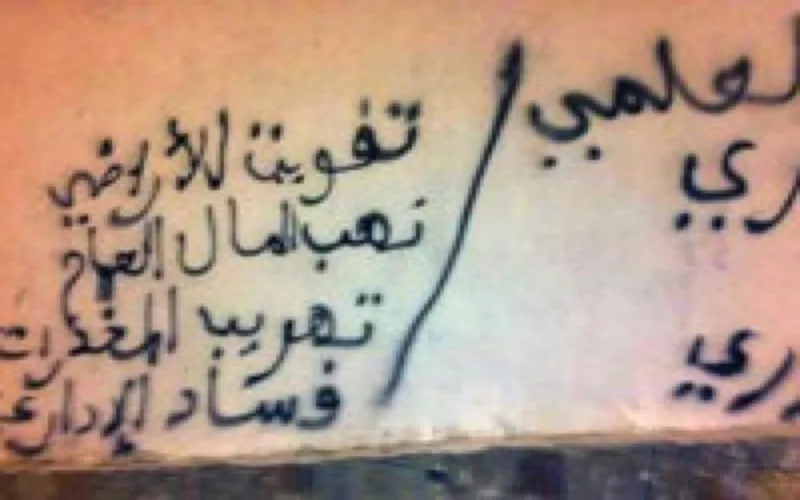 لعلمي
ري
ري
تفويت للأراضي
نهب المال العام
تهريب المخذرات
فساد الإدارة